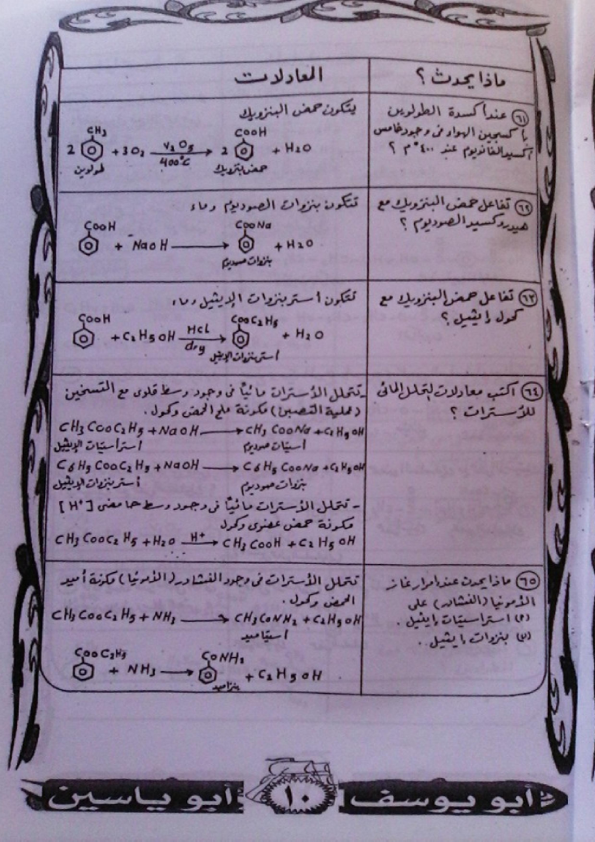 ماذا يحدث ؟
المعادلات
(٦١) عند أكسدة الطولوين
بأكسجين الهواء فى وجود خامس
أكسيد الفانديوم عند ٤٠٠°م ؟
يتكون حمض البنزويك
CH3 COOH
2 + 3O2 V2O5 400°C → 2 + H2O
طولوين حمض بنزويك
(٦٢) تفاعل حمض البنزويك مع
هيدروكسيد الصوديوم ؟
تتكون بنزوات الصوديوم وماء
COOH COONa
+ NaOH → + H2O
بنزوات صوديوم
(٦٣) تفاعل حمض البنزويك مع
كحول إيثيل ؟
تتكون أستر بنزوات الإيثيل وماء
COOH COOC2H5
+ C2H5OH HCl dry → + H2O
أستر بنزوات الإيثيل
(٦٤) اكتب معادلات التحلل المائى
للأسترات ؟
- تتحلل الأسترات مائياً فى وجود وسط قلوى مع التسخين
(عملية التصبن) مكونة ملح الحمض وكحول.
CH3COOC2H5 + NaOH → CH3COONa + C2H5OH
أستر أسيتات الإيثيل أسيتات صوديوم
C6H5COOC2H5 + NaOH → C6H5COONa + C2H5OH
أستر بنزوات الإيثيل بنزوات صوديوم
- تتحلل الأسترات مائياً فى وجود وسط حامضى [H+]
مكونة حمض عضوى وكحول
CH3COOC2H5 + H2O H+ → CH3COOH + C2H5OH
(٦٥) ماذا يحدث عند إمرار غاز
الأمونيا (النشادر) على
(أ) استر اسيتات إيثيل .
(ب) بنزوات إيثيل .
تتحلل الأسترات فى وجود النشادر (الأمونيا) مكونة أميد
الحمض وكحول .
CH3COOC2H5 + NH3 → CH3CONH2 + C2H5OH
أسيتاميد
COOC2H5 CONH2
+ NH3 → + C2H5OH
بنزاميد
أبو يوسف ١٠ أبو ياسين